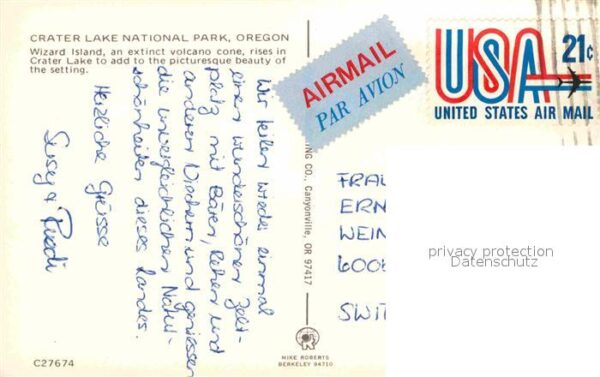 CRATER LAKE NATIONAL PARK, OREGON
Wizard Island, an extinct volcano cone, rises in
Crater Lake to add to the picturesque beauty of
the setting.
Wir teilen wieder einmal
einen wunderschönen Zelt-
platz mit Bären, Rehen und
anderen Viechern und geniessen
die unvergleichlichen Natur-
schönheiten dieses Landes.
Herzliche Grüsse
Susey & Ruedi
AIRMAIL
PAR AVION
USA 21c
UNITED STATES AIR MAIL
ING CO., Canyonville, OR 97417
FRAU
ERN
WEIN
600
SWIT
privacy protection
Datenschutz
MIKE ROBERTS
BERKELEY 94710
C27674